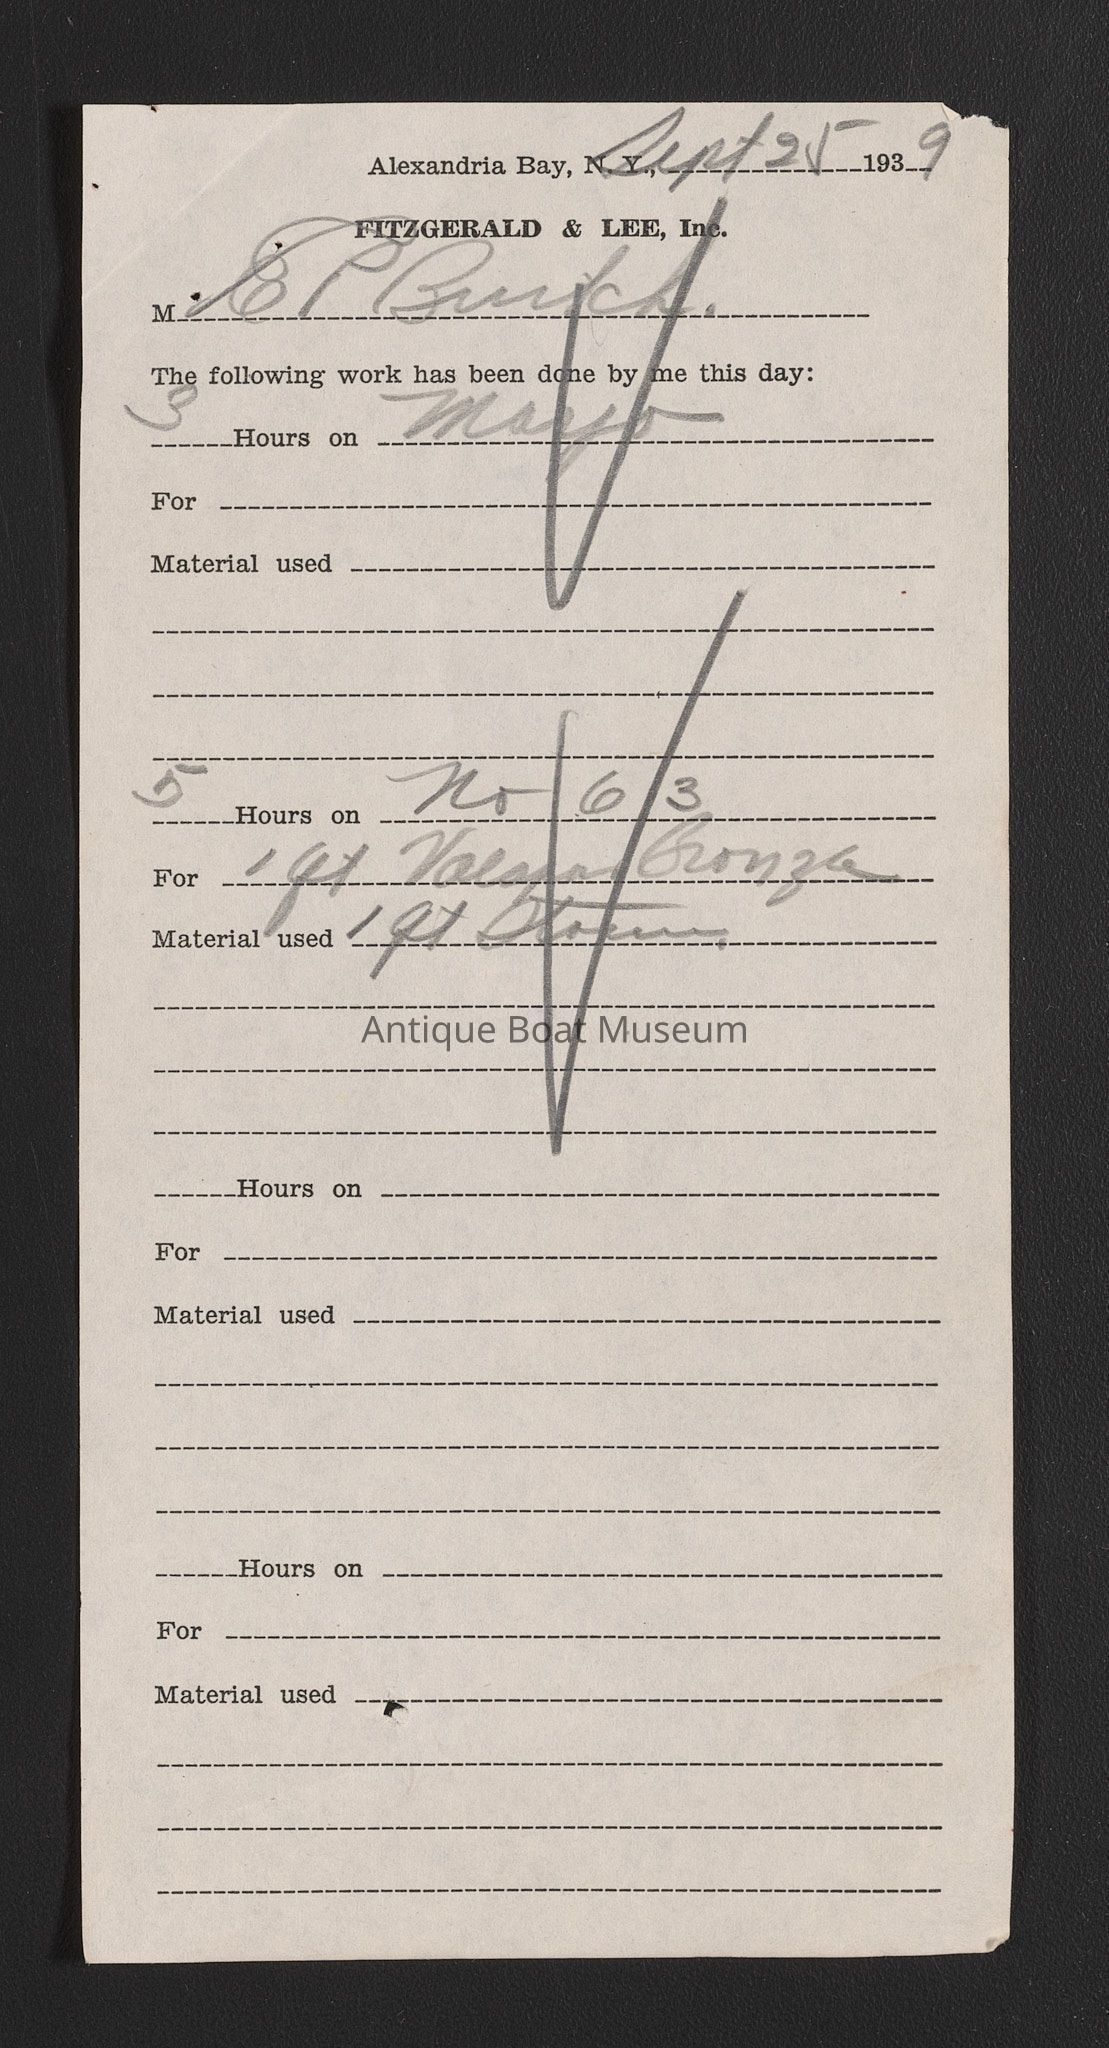 Alexandria Bay, N. Y., Sept 25 1939
FITZGERALD & LEE, Inc.
M E P Burtch.
The following work has been done by me this day:
3 Hours on Mayo
For
Material used
5 Hours on No 63
For 1 qt Valspar Bronze
Material used 1 qt
Antique Boat Museum
Hours on
For
Material used
Hours on
For
Material used